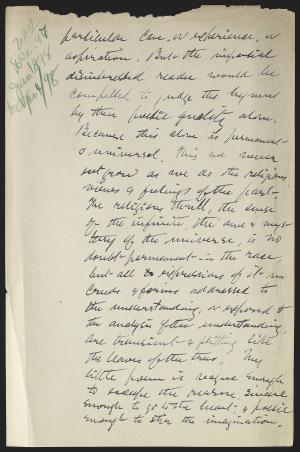 particular case, or experience, or
aspiration. But the impartial
disinterested reader would be
compelled to judge the hymns
by their poetic quality alone.
Because this alone is permanent
& universal. This we never
outgrow as we do the religious
views & feelings of the past.
The religious thrill, the sense
of the infinite, the awe & mys-
tery of the universe, is no
doubt permanent in the race,
but all expressions of it in
creeds & forms addressed to
the understanding, or exposed to
the analysis of the understanding,
are transient & flitting like
the leaves of the trees. My
little poem is vague enough
to escape the reason, sincere
enough to go to the heart, & poetic
enough to stir the imagination.